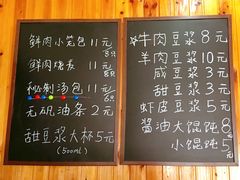 鲜肉小笼包 11元
8只
鲜肉烧麦 11元
8只
秘制汤包 11元
6只
无矾油条 2元
甜豆浆大杯5元
(500ml)
牛肉豆浆 8元
羊肉豆浆 10元
咸豆浆 3元
甜豆浆 3元
虾皮豆浆 5元
酱油大馄饨 8元
小馄饨 5元